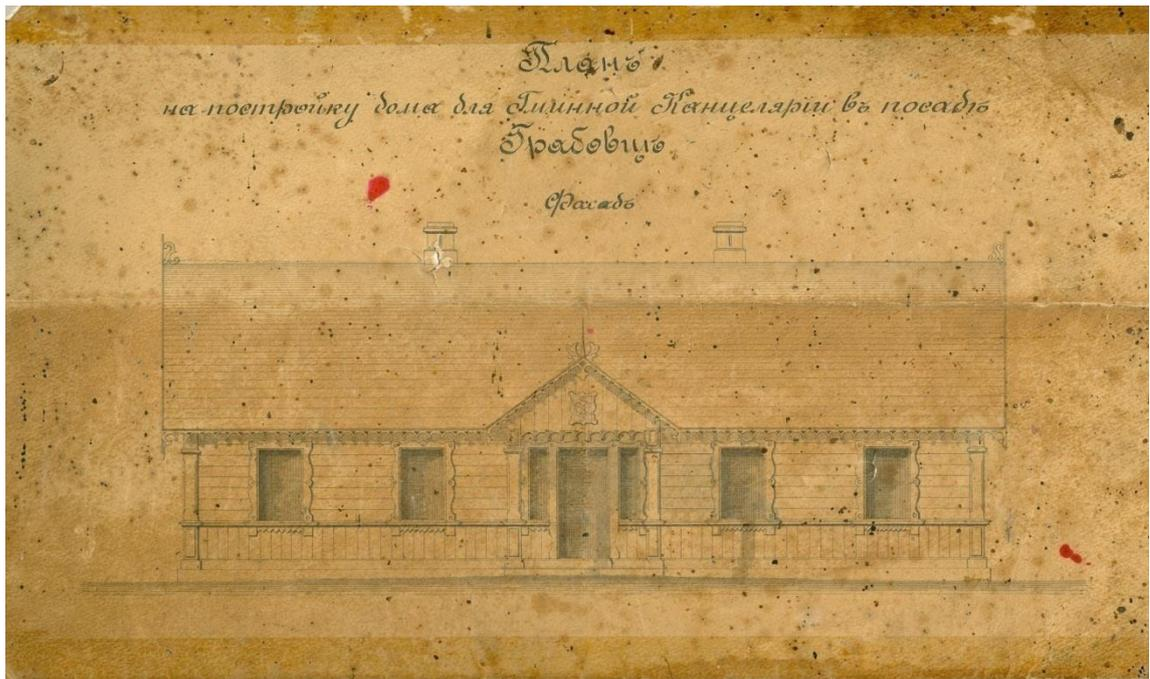 Планъ
на постройку дома для Гминной Канцеляріи въ посадѣ
Грабовцѣ
Фасадъ